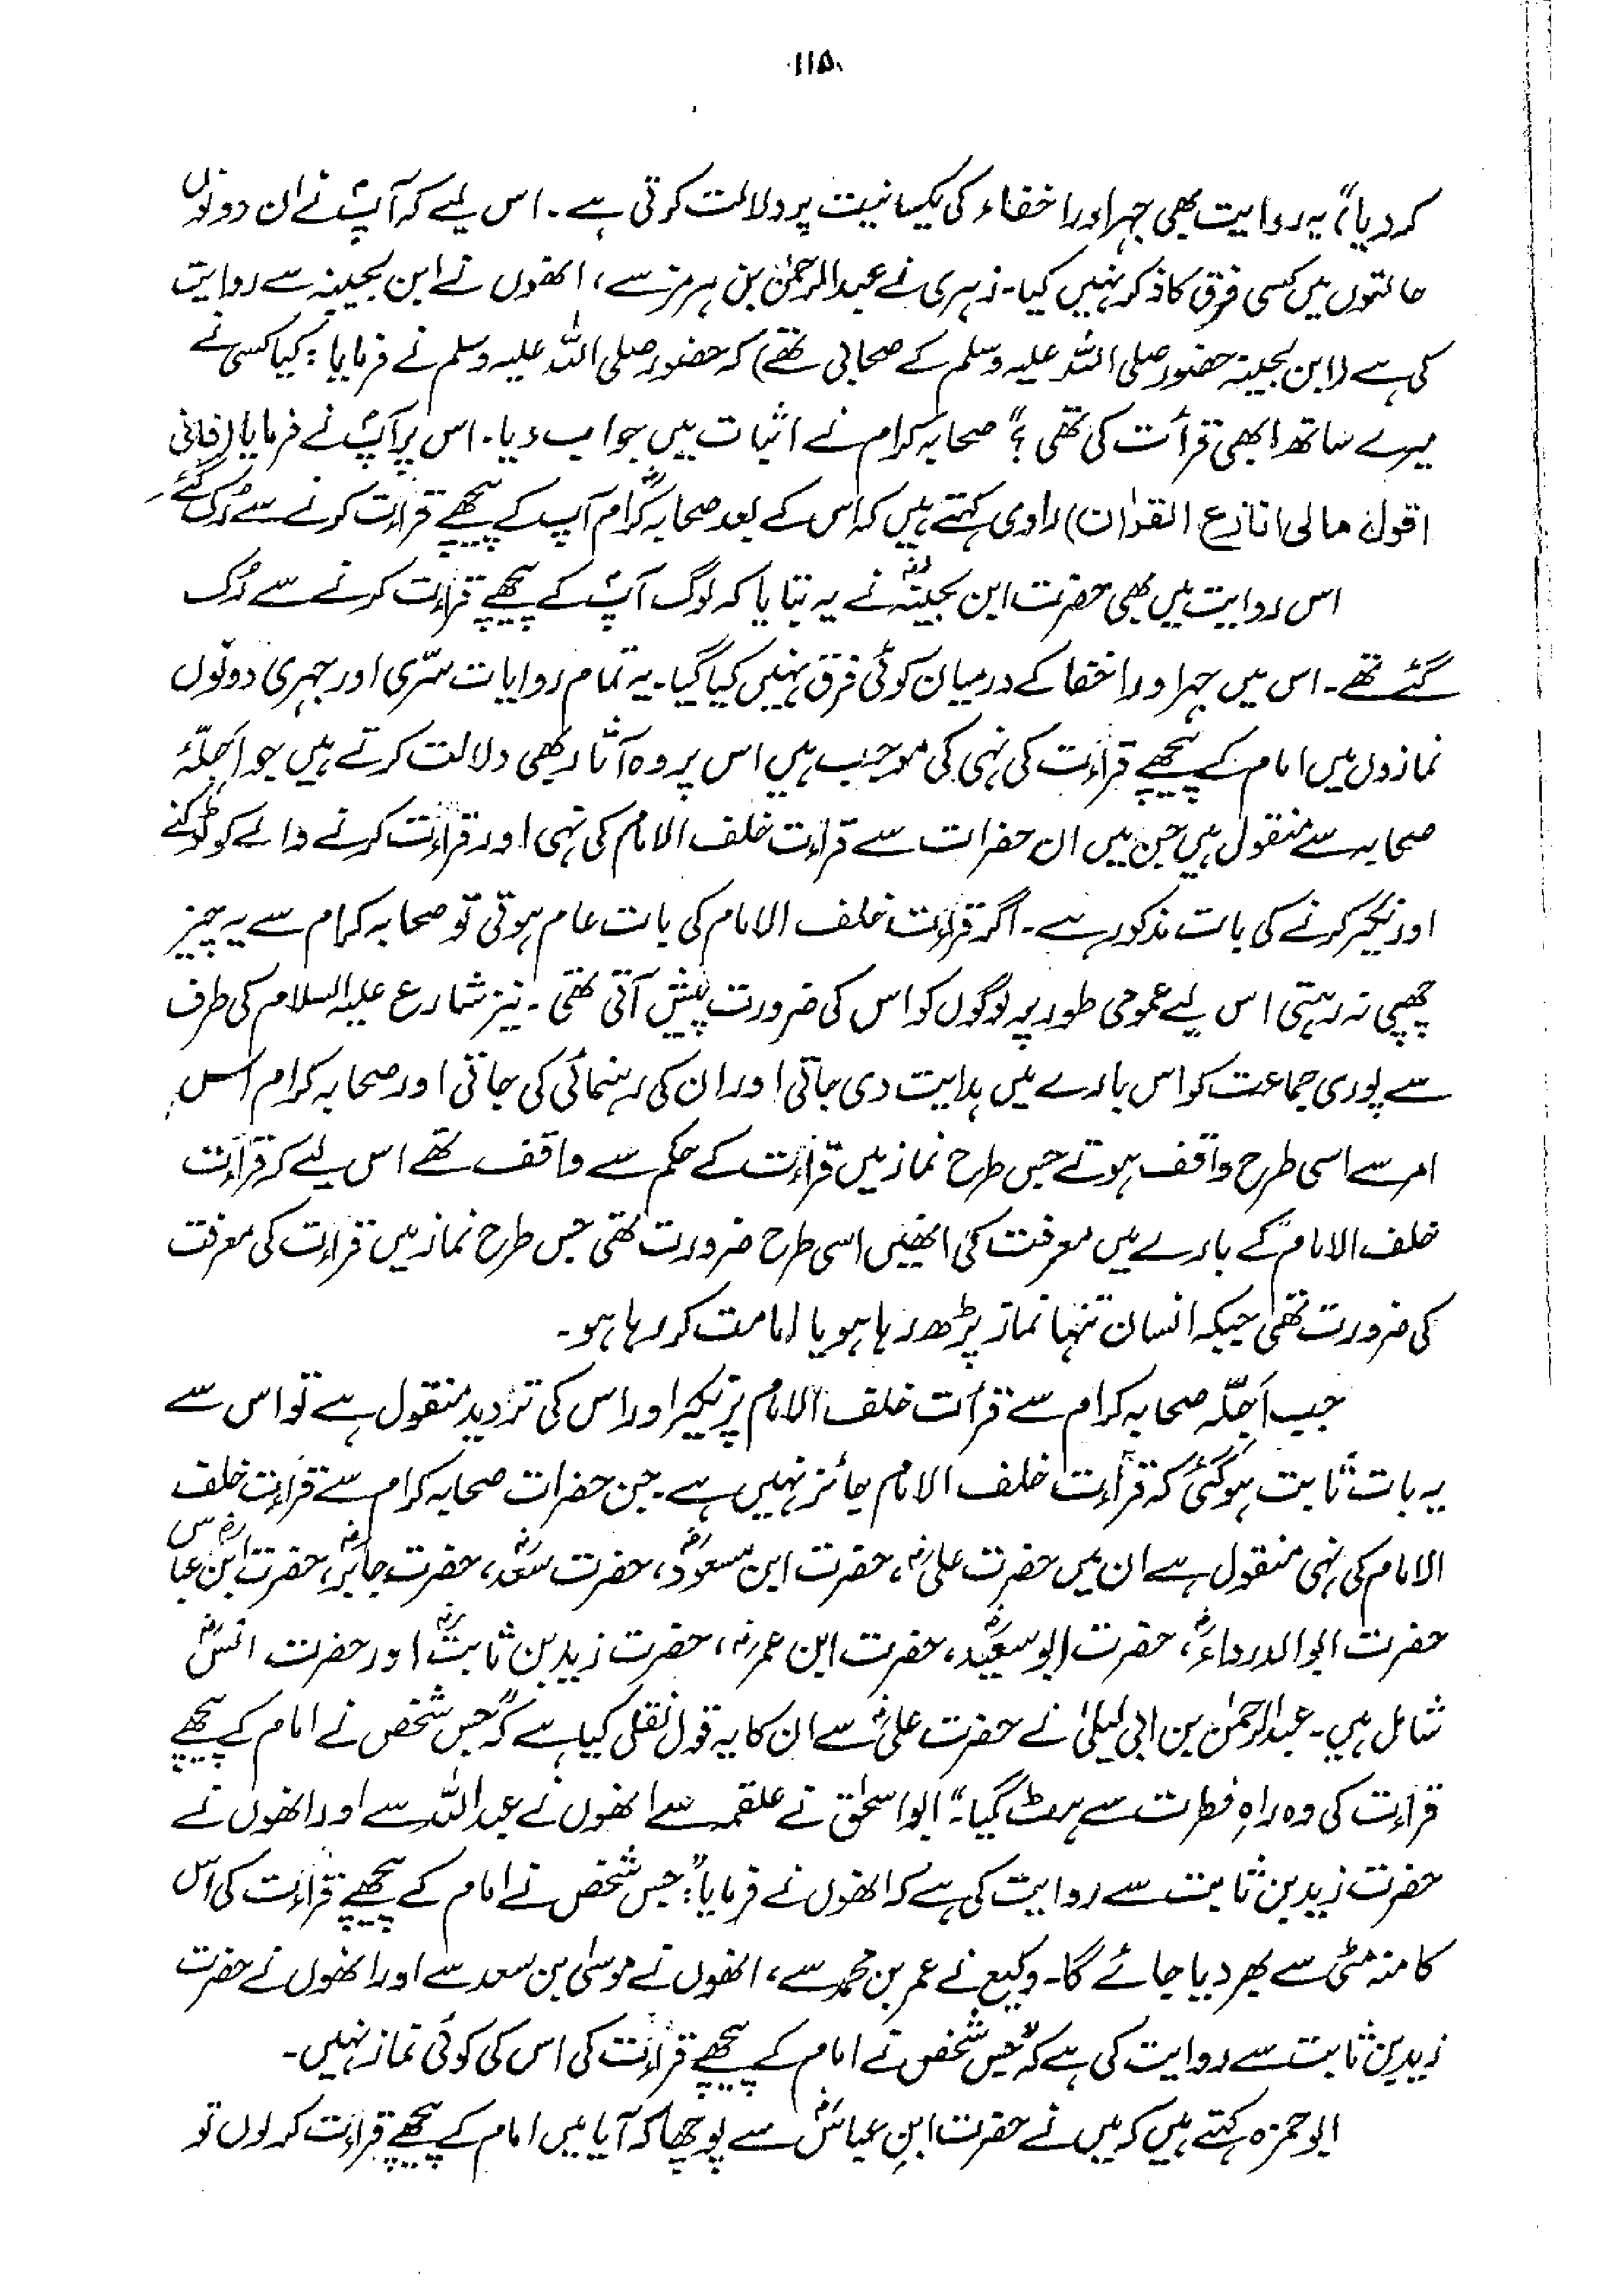 ۱۱۵
کر دیا"، یہ روایت بھی جہر اور اخفاء کی یکسانیت پر دلالت کرتی ہے۔ اس لیے کہ آپؐ نے ان دونوں
حالتوں میں کسی فرق کا ذکر نہیں کیا۔ زہری نے عبدالرحمٰن بن ہرمز سے، انھوں نے ابن بحینہ سے روایت
کی ہے (ابن بحینہ حضور صلی اللہ علیہ وسلم کے صحابی تھے) کہ حضور صلی اللہ علیہ وسلم نے فرمایا: کیا کسی نے
میرے ساتھ ابھی قرأت کی تھی؟" صحابہ کرام نے اثبات میں جواب دیا۔ اس پر آپؐ نے فرمایا (فانی
اقول مالی انازع القرٰان) راوی کہتے ہیں کہ اس کے بعد صحابہ کرامؓ آپ کے پیچھے قرأت کرنے سے رُک گئے۔
اس روایت میں بھی حضرت ابن بحینہؓ نے یہ بتایا کہ لوگ آپؐ کے پیچھے قرأت کرنے سے رُک
گئے تھے۔ اس میں جہر اور اخفا کے درمیان کوئی فرق نہیں کیا گیا۔ یہ تمام روایات سرّی اور جہری دونوں
نمازوں میں امام کے پیچھے قرأت کی نہی کی موجب ہیں اس پر وہ آثار بھی دلالت کرتے ہیں جو اَجِلّۂ
صحابہ سے منقول ہیں جن میں ان حضرات سے قرأت خلف الامام کی نہی اور قرأت کرنے والے کو ٹوکنے
اور نکیر کرنے کی بات مذکور ہے۔ اگر قرأت خلف الامام کی بات عام ہوتی تو صحابہ کرام سے یہ چیز
چھپی نہ رہتی اس لیے عمومی طور پہ لوگوں کو اس کی ضرورت پیش آتی تھی۔ نیز شارع علیہ السلام کی طرف
سے پوری جماعت کو اس بارے میں ہدایت دی جاتی اور ان کی رہنمائی کی جاتی اور صحابہ کرام اس
امر سے اسی طرح واقف ہوتے جس طرح نماز میں قرأت کے حکم سے واقف تھے اس لیے کہ قرأت
خلف الامام کے بارے میں معرفت کی انھیں اسی طرح ضرورت تھی جس طرح نماز میں قرأت کی معرفت
کی ضرورت تھی جبکہ انسان تنہا نماز پڑھ رہا ہو یا امامت کر رہا ہو۔
جب اَجِلّہ صحابہ کرام سے قرأت خلف الامام پر نکیر اور اس کی تردید منقول ہے تو اس سے
یہ بات ثابت ہو گئی کہ قرأت خلف الامام جائز نہیں ہے۔ جن حضرات صحابہ کرام سے قرأت خلف
الامام کی نہی منقول ہے ان میں حضرت علیؓ، حضرت ابن مسعودؓ، حضرت سعدؓ، حضرت جابرؓ، حضرت ابن عباسؓ
حضرت ابوالدرداءؓ، حضرت ابوسعیدؓ، حضرت ابن عمرؓ، حضرت زید بن ثابتؓ اور حضرت انسؓ
شامل ہیں۔ عبدالرحمٰن بن ابی لیلیٰ نے حضرت علیؓ سے ان کا یہ قول نقل کیا ہے کہ "جس شخص نے امام کے پیچھے
قرأت کی وہ راہِ فطرت سے ہٹ گیا۔" ابواسحٰق نے علقمہ سے انھوں نے عبداللہ سے اور انھوں نے
حضرت زید بن ثابت سے روایت کی ہے کہ انھوں نے فرمایا: "جس شخص نے امام کے پیچھے قرأت کی اس
کا منہ مٹی سے بھر دیا جائے گا۔ وکیع نے عمر بن محمد سے، انھوں نے موسیٰ بن سعد سے اور انھوں نے حضرت
زید بن ثابت سے روایت کی ہے کہ "جس شخص نے امام کے پیچھے قرأت کی اس کی کوئی نماز نہیں۔
ابوحمزہ کہتے ہیں کہ میں نے حضرت ابنِ عباسؓ سے پوچھا کہ آیا میں امام کے پیچھے قرأت کر لوں تو